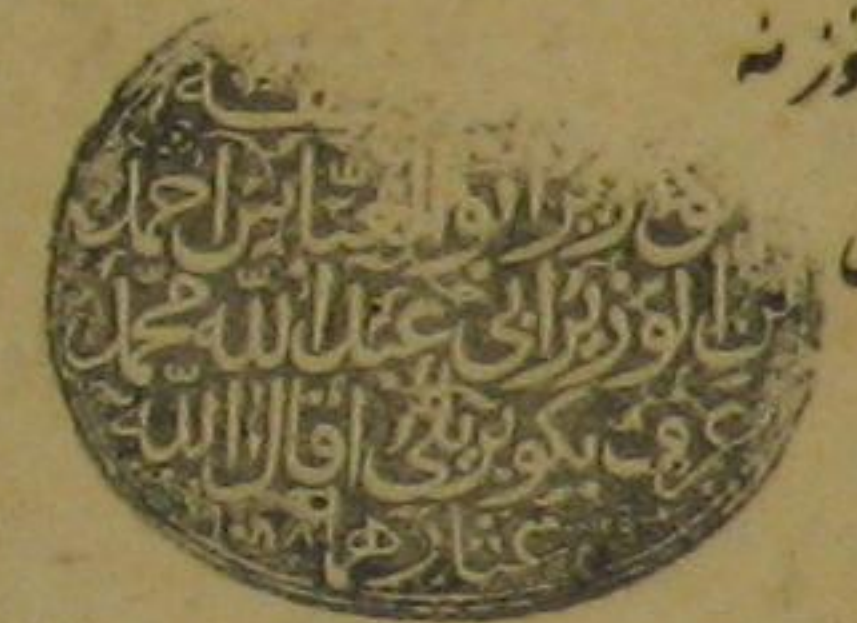 الوزير ابو العباس احمد
بن الوزير ابي عبد الله محمد
عرف بكوبريلي اقال الله
عثارهما ١٠٨٨